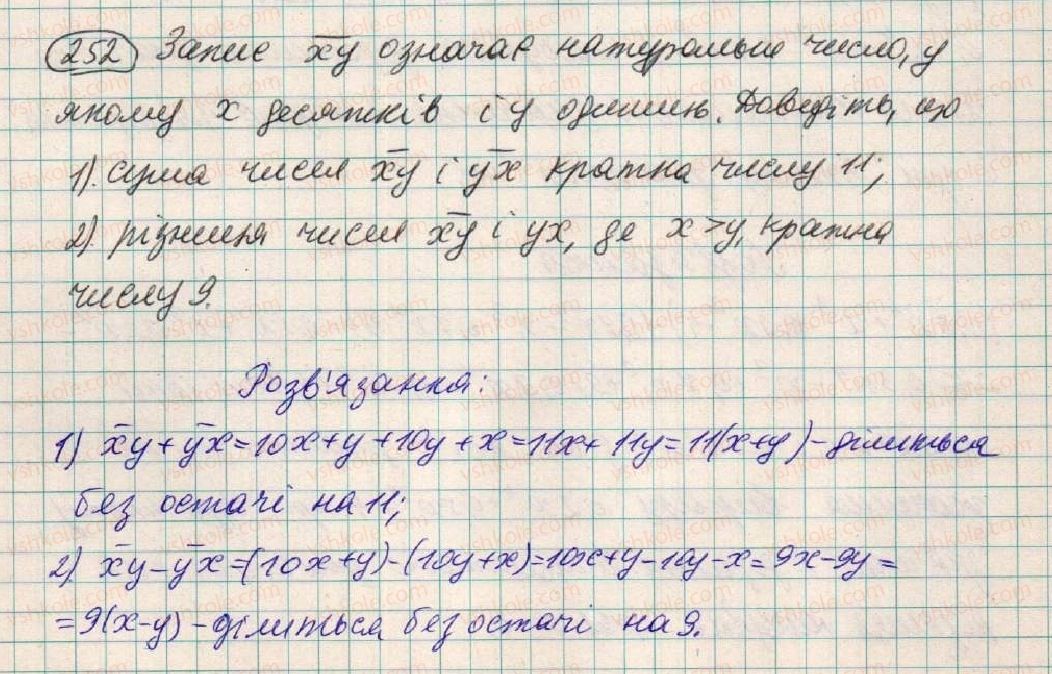 252 Запис x̅y̅ означає натуральне число, у
якому x десятків і y одиниць. Доведіть, що
1). сума чисел x̅y̅ і y̅x̅ кратна числу 11;
2). різниця чисел x̅y̅ і yx, де x>y, кратна
числу 9.
Розв'язання:
1) x̅y̅+y̅x̅=10x+y+10y+x=11x+11y=11(x+y)-ділиться
без остачі на 11;
2). x̅y̅-y̅x̅=(10x+y)-(10y+x)=10x+y-10y-x=9x-9y=
=9(x-y)-ділиться без остачі на 9.